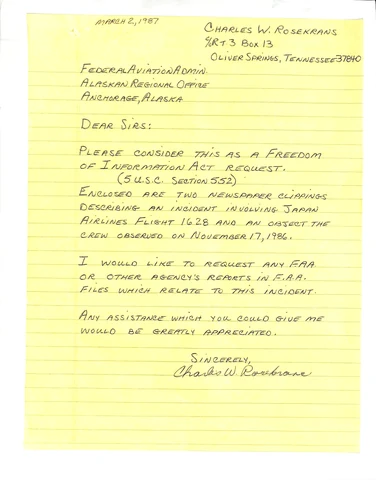 MARCH 2, 1987
CHARLES W. ROSEKRANS
℅ RT 3 BOX 13
OLIVER SPRINGS, TENNESSEE 37840
FEDERAL AVIATION ADMIN.
ALASKAN REGIONAL OFFICE
ANCHORAGE, ALASKA
DEAR SIRS:
PLEASE CONSIDER THIS AS A FREEDOM
OF INFORMATION ACT REQUEST.
(5 U.S.C. SECTION 552)
ENCLOSED ARE TWO NEWSPAPER CLIPPINGS
DESCRIBING AN INCIDENT INVOLVING JAPAN
AIRLINES FLIGHT 1628 AND AN OBJECT THE
CREW OBSERVED ON NOVEMBER 17, 1986.
I WOULD LIKE TO REQUEST ANY FAA
OR OTHER AGENCY'S REPORTS IN F.A.A.
FILES WHICH RELATE TO THIS INCIDENT.
ANY ASSISTANCE WHICH YOU COULD GIVE ME
WOULD BE GREATLY APPRECIATED.
SINCERELY,
Charles W. Rosekrans